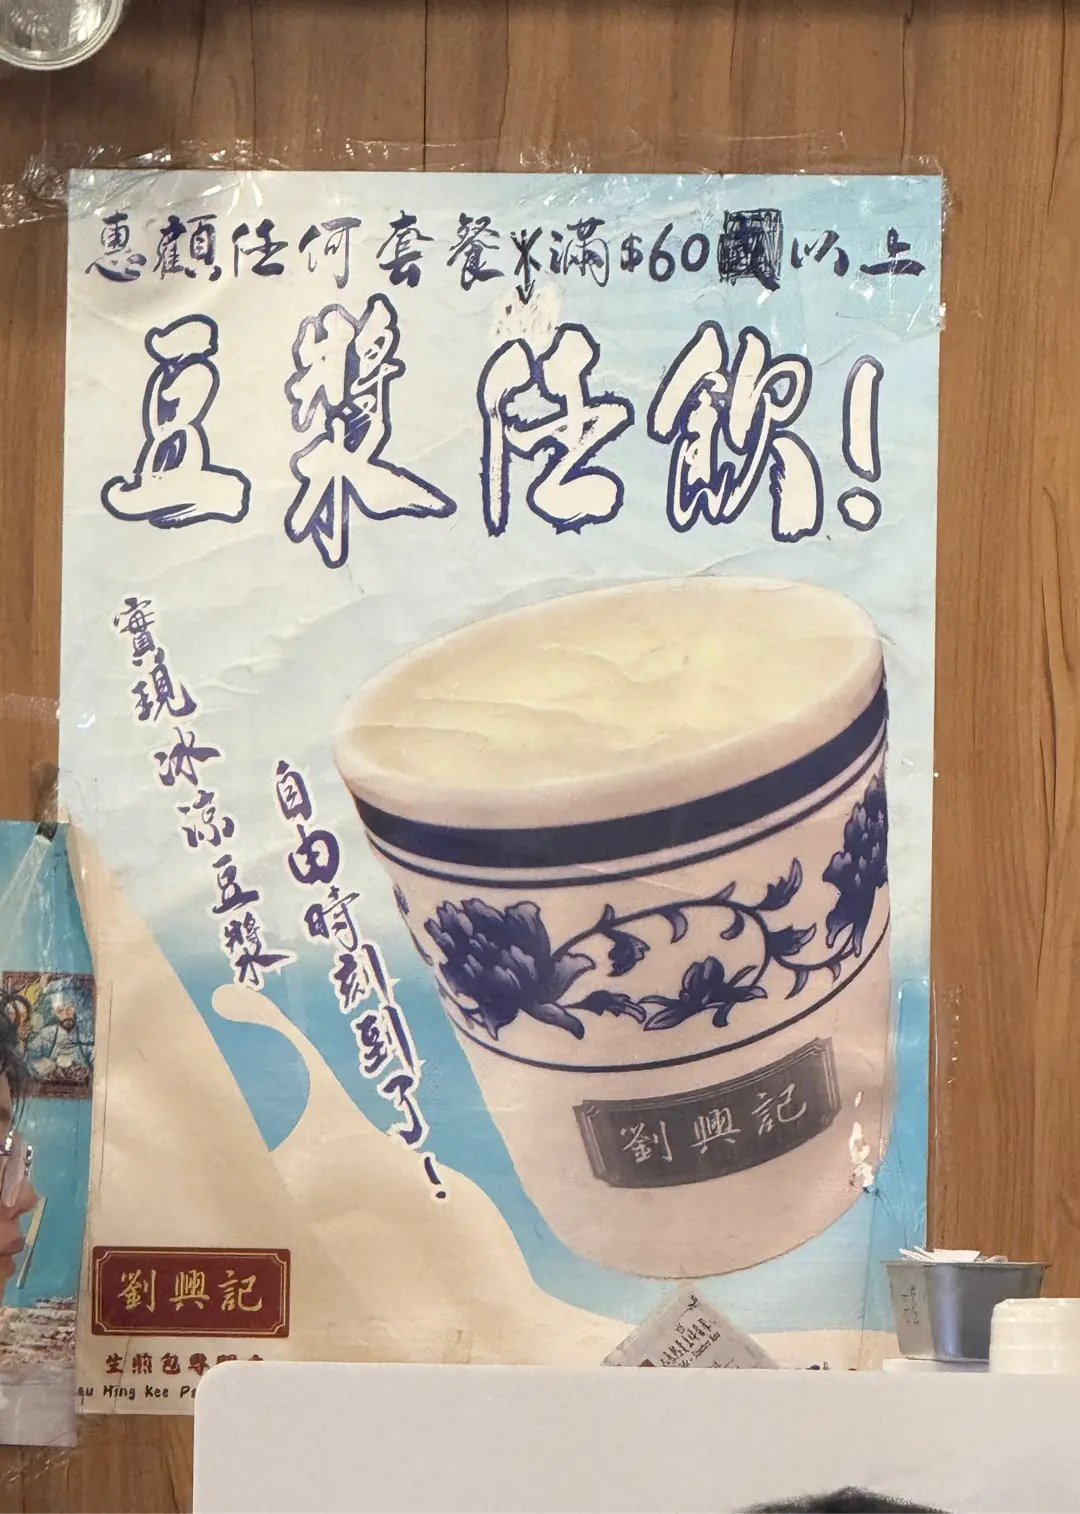 惠顧任何套餐滿$60以上
豆漿任飲!
實現冰涼豆漿
自由時刻到了!
劉興記
劉興記
生煎包專門
Hing Kee